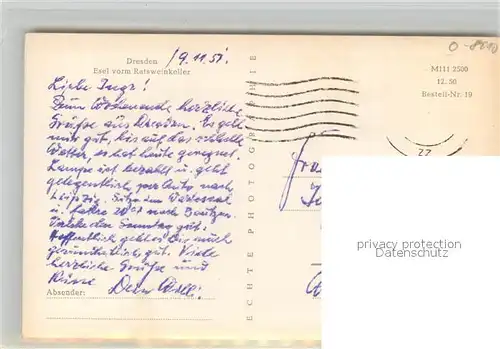 O-8010
Dresden
Esel vorm Ratsweinkeller
19.11.51.
M111 2500
12. 50
Bestell-Nr. 19
Liebe Inge!
Zum Wochenende herzliche
Grüsse aus Dresden. Es geht
mir gut, bis auf das schlechte
Wetter, es hat heute geregnet.
Lampe ist bezahlt u. geht
gelegentlich per Auto nach
Leipzig. Sitze im
u. fahre 20 nach Bautzen.
den Sonntag gut.
Hoffentlich geht es Dir auch
gesundheitlich gut. Viele
herzliche Grüsse und
Küsse Dein
Absender:
ECHTE PHOTOGRAPHIE
22
privacy protection
Datenschutz